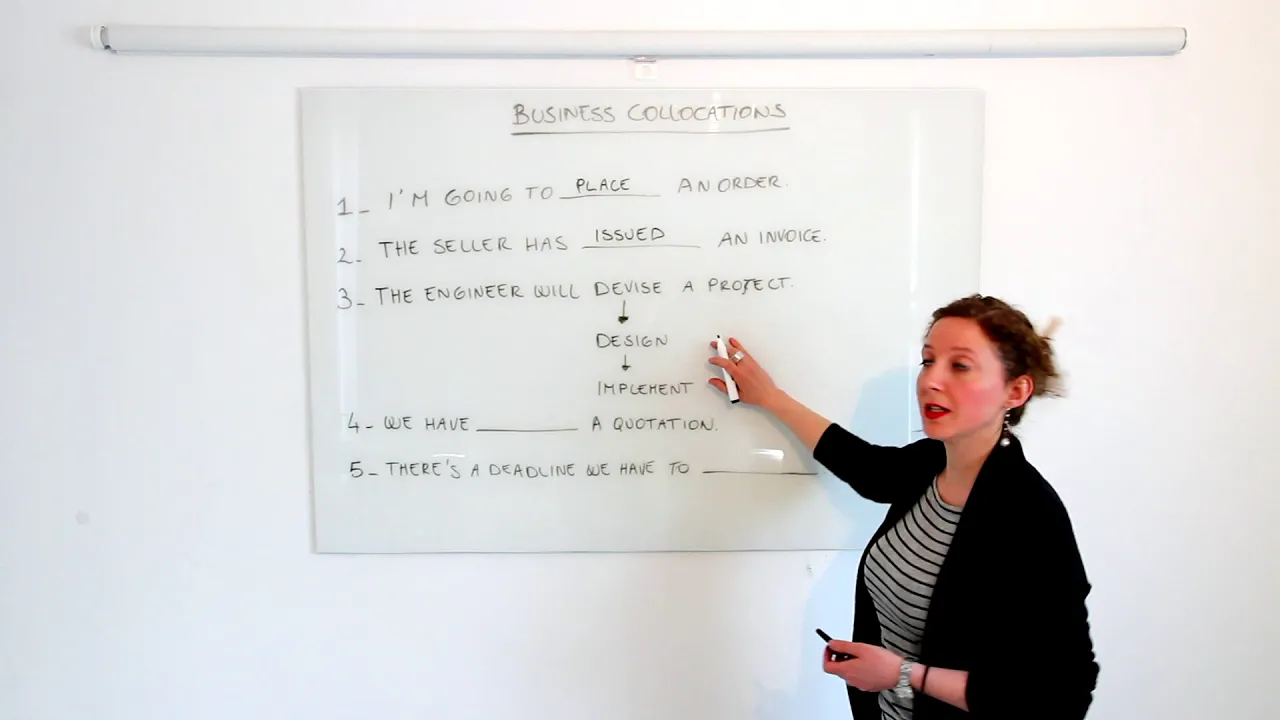 BUSINESS COLLOCATIONS
1_ I'M GOING TO PLACE AN ORDER.
2_ THE SELLER HAS ISSUED AN INVOICE.
3_ THE ENGINEER WILL DEVISE A PROJECT.
DESIGN
IMPLEMENT
4_ WE HAVE __________ A QUOTATION.
5_ THERE'S A DEADLINE WE HAVE TO __________